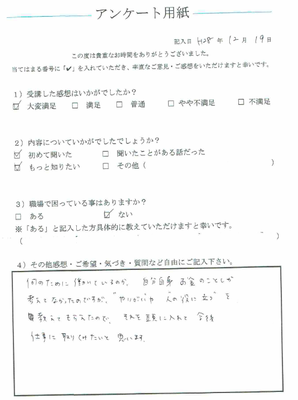 アンケート用紙
記入日 H28年12月19日
この度は貴重なお時間をありがとうございました。
当てはまる番号に「✓」を入れていただき、率直なご意見・ご感想をいただけますと幸いです。
1）受講した感想はいかがでしたか？
☑ 大変満足 □ 満足 □ 普通 □ やや不満足 □ 不満足
2）内容についていかがでしたでしょうか？
☑ 初めて聞いた □ 聞いたことがある話だった
☑ もっと知りたい □ その他（ ）
3）職場で困っている事はありますか？
□ ある ☑ ない
※「ある」と記入した方具体的に教えていただけますと幸いです。
（ ）
4）その他感想・ご希望・気づき・質問など自由にご記入下さい。
何のために働いているのか、自分自身 お金のことしか
考えてなかったのですが、"やりがい"や "人の役に立つ" を
教えてもらえたので、それを頭に入れて 今後
仕事に取り組みたいと思います。